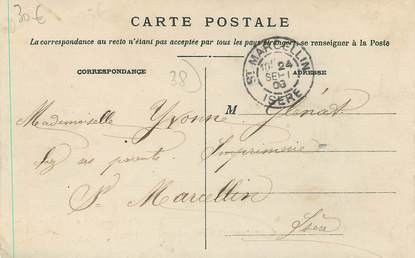 30€
CARTE POSTALE
La correspondance au recto n'étant pas acceptée par tous les pays étrangers, se renseigner à la Poste
CORRESPONDANCE
ADRESSE
38
ST MARCELLIN
24
SEPT
03
ISÈRE
M
Mademoiselle Yvonne Glénat
chez ses parents Imprimerie
St Marcellin
Isère